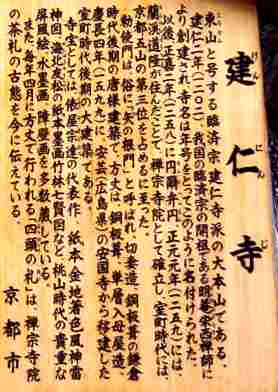 建仁寺
けんにんじ
東山と号する臨済宗建仁寺派の大本山である。
建仁二年(一二〇二)、我国の臨済宗の開祖である明菴栄西禅師に
より創建され、寺名は年号をとってこのように名付けられた。
以後、正嘉二年(一二五八)に円爾弁円、正元元年(一二五九)には、
蘭渓道隆が住んだことで、禅宗寺院として確立し、室町時代には、
京都五山の第三位を占めるに至った。
勅使門は、俗に「矢の根門」と呼ばれ、切妻造、銅板葺の鎌倉
時代後期の唐様建築で、方丈は、銅板葺、単層入母屋造、
慶長四年(一五九九)に安芸(広島県)の安国寺から移建した
室町時代後期の大建築である。
寺宝として、俵屋宗達の代表作、紙本金地着色風神雷
神図、海北友松の紙本墨画竹林七賢図など、桃山時代の貴重な
屏風絵、水墨画、障壁画を多数蔵している。
また、毎年四月に方丈で行われる「四頭の礼」は、禅宗寺院
の茶礼の古態を今に伝えている。
京都市